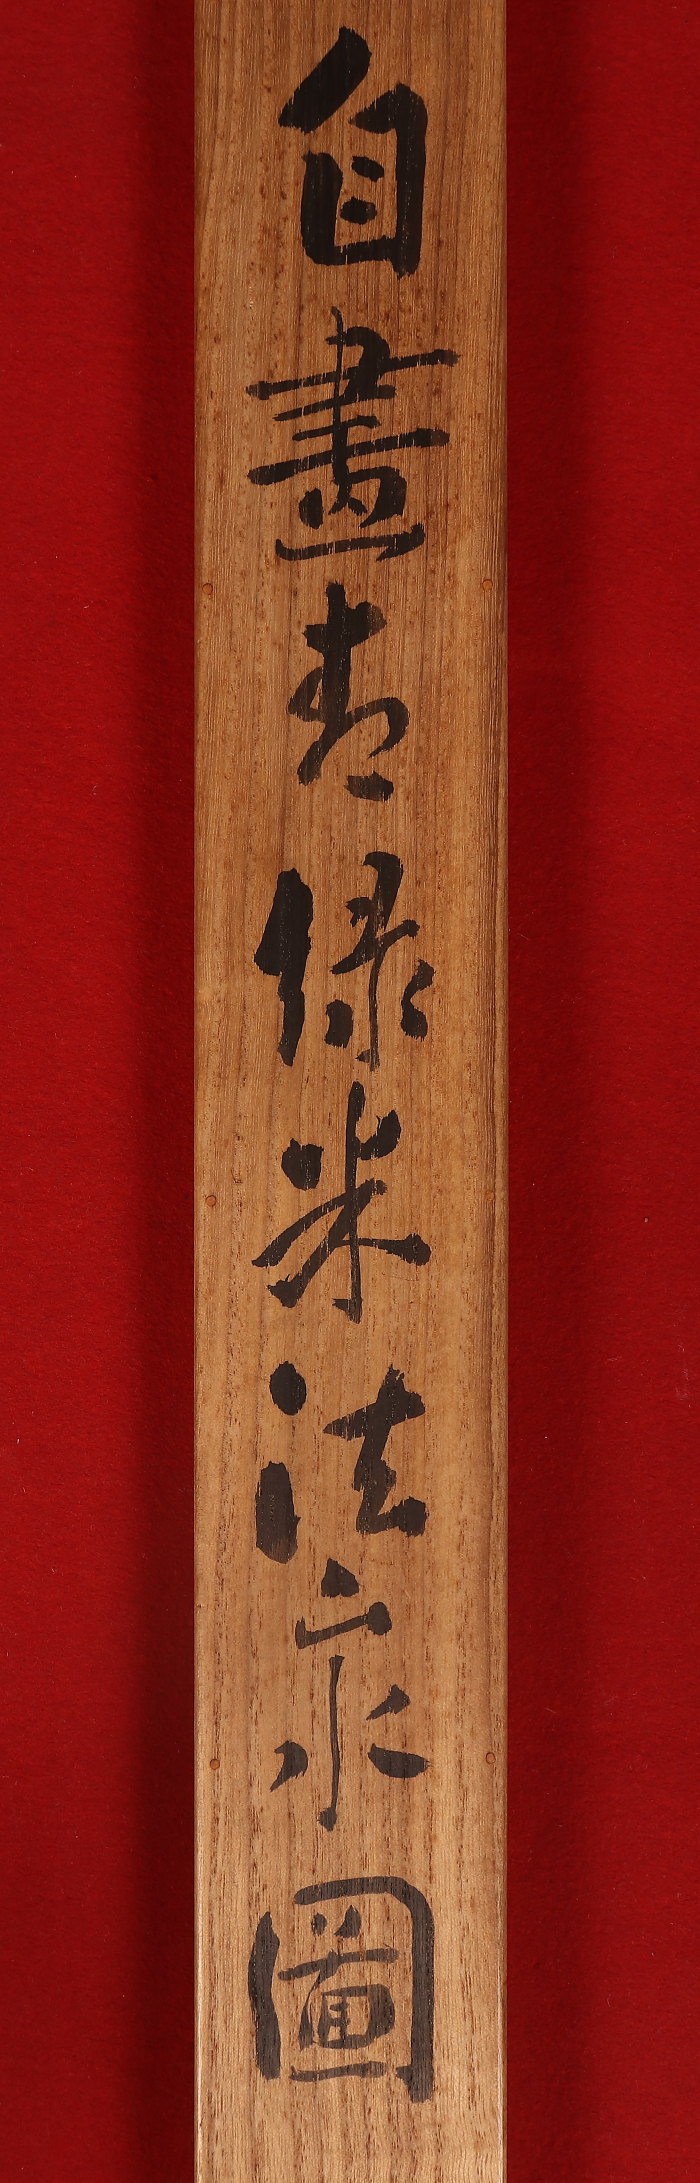 自畫青緑米法山水圖